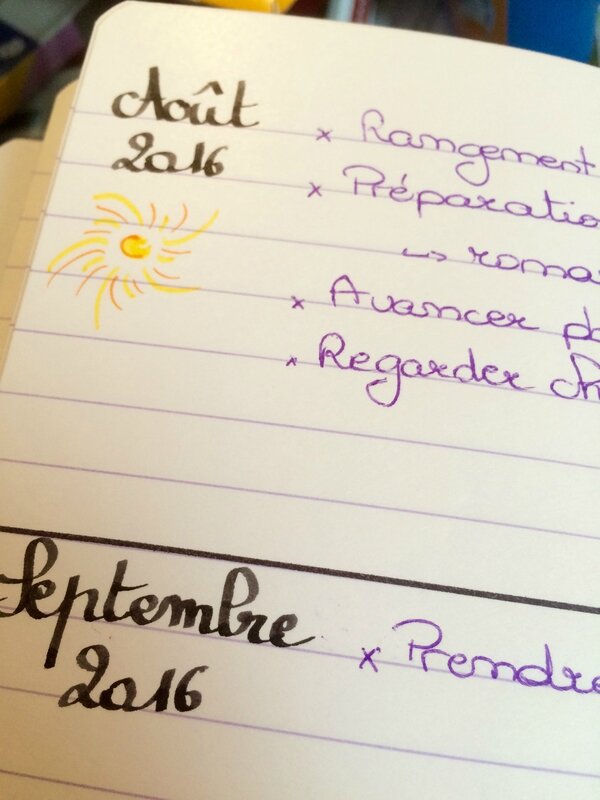 Août
2016
x Rangement
x Préparatio
↳ roma
x Avancer
x Regarder
Septembre
2016
x Prendre